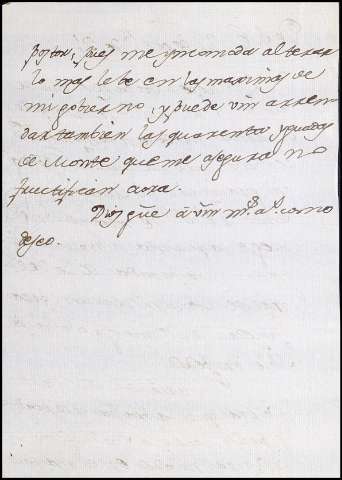 pues me yncomoda alterar
lo mas lebe en las maximas de
mi gobierno, y puede vm arren
dar tambien las quarenta yguadas
de Monte que me asegura no
fructifican aora.
Dios gũe â vm m.s a.s como
deseo.